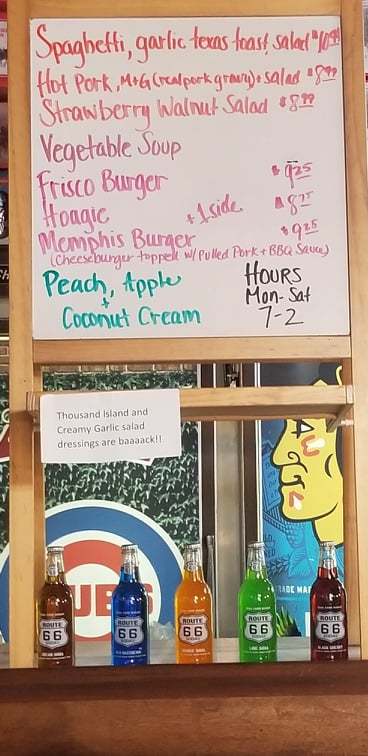 Spaghetti, garlic texas toast, salad $10.99
Hot Pork, M+G (real pork gravy) + salad $8.99
Strawberry Walnut Salad $8.99
Vegetable Soup
Frisco Burger $9.25
Hoagie +1side $8.75
Memphis Burger $9.25
(Cheeseburger topped w/ Pulled Pork + BBQ Sauce)
Peach, Apple
+
Coconut Cream
HOURS
Mon-Sat
7-2
Thousand Island and
Creamy Garlic salad
dressings are baaaack!!
UBS
TRADE MA
ROUTE
66
ROUTE
66
ROUTE
66
ROUTE
66
LIME SODA
ROUTE
66
BLACK CHERRY